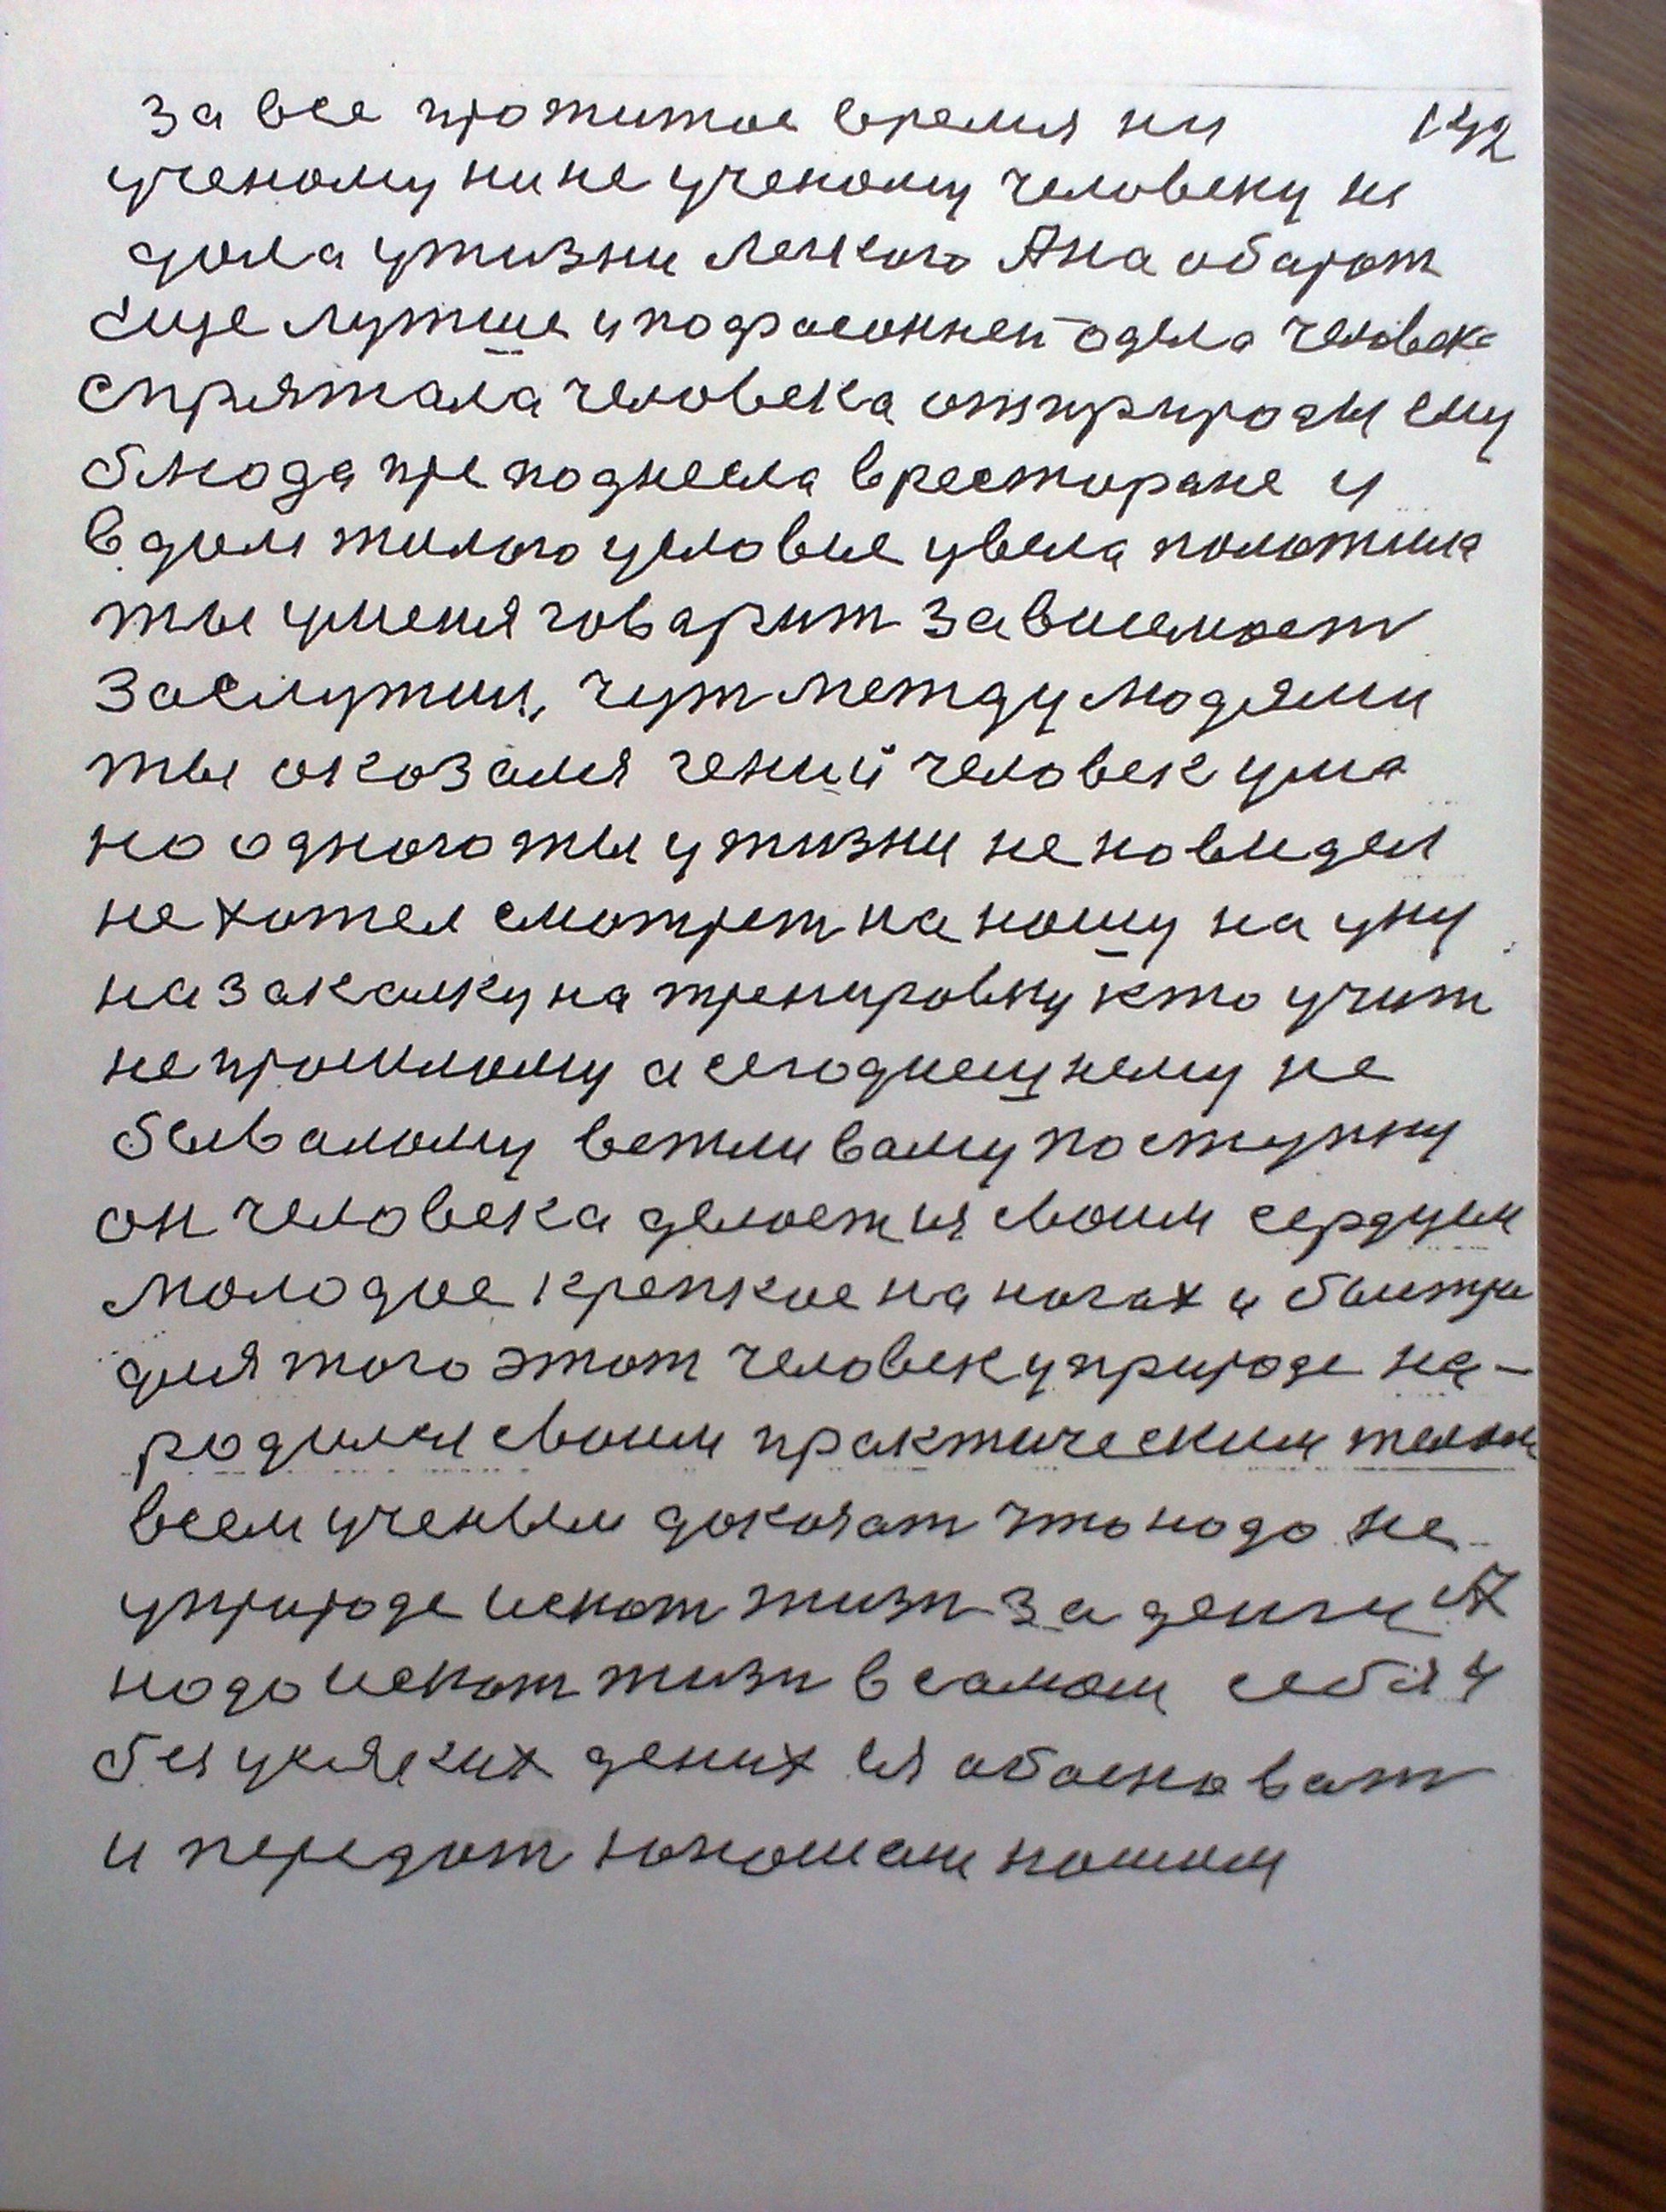 за все прожитое время ни 142
ученому ни не ученому человеку не
дола у жизни легкого А на обарот
еще лутше и по фасонней одела человека
спрятала человека от природы ему
блюда преподнесла в ресторане и
в дом жилого условие увела положила
ты умения говарит зависемост
заслужил, чут между людями
ты оказался гений человек ума
но одного ты у жизни не новидел
не хотел смотрет на нашу науку
на закалку на тренировку кто учит
не прошлому а сегоднешнему не
бывалому вежливаму поступку
он человека делоется своим сердцем
молодое крепкое на ногах и быстро
для того этот человек у природе на-
родился своим практическим телом
всем ученым доказат что надо не
у природе искат жизн за денги А
надо искат жизн в самом себя и
без усяких дених ея обоснават
и передат юношам нашим